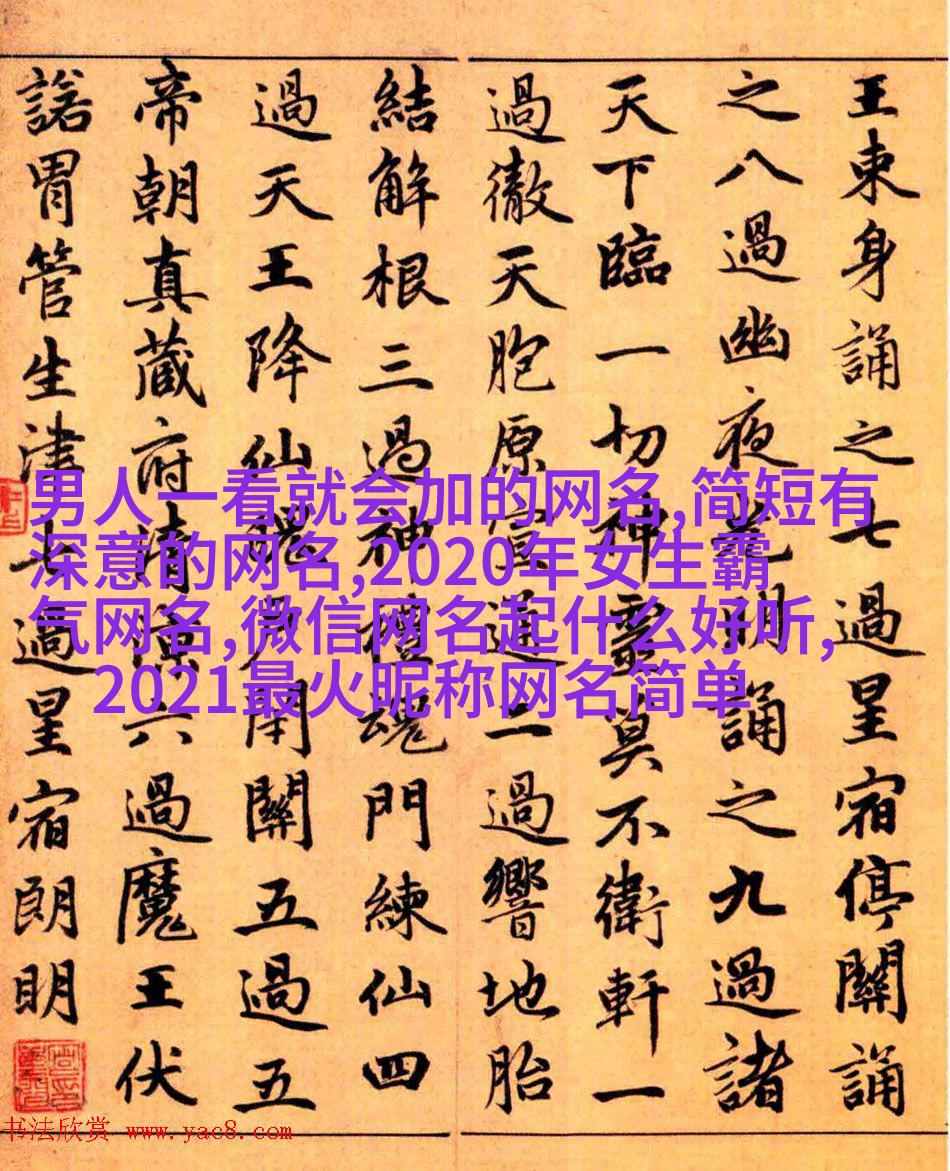 王東身誦之七過星宿停關誦
之八過幽夜光朗誦之九過諸
天下臨一切神靈莫不衛軒一
過徹天胞原宣通二過響地胎
結解根三過神禮魂門練仙四
過天王降仙開關五過五
帝朝真藏府清涼六過魔王伏
諾胃管生津七過星宿朗明
男人一看就会加的网名,简短有
深意的网名,2020年女生霸
气网名,微信网名起什么好听,
2021最火昵称网名简单
书法欣赏 www.yac8.com